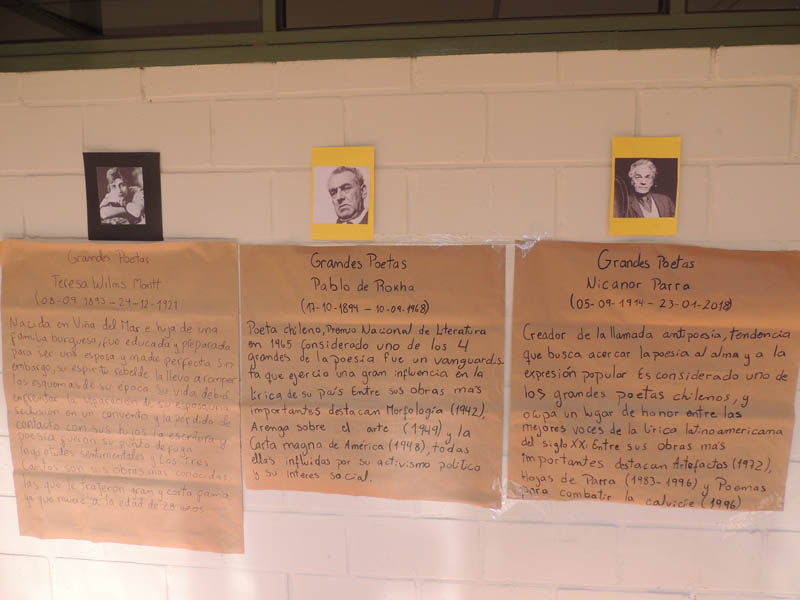 Grandes Poetas
Teresa Wilms Montt
(08-09-1893-24-12-1921
Nacida en Viña del Mar e hija de una
familia burguesa, fue educada y preparada
para ser una esposa y madre perfecta Sin
embargo, su espiritu rebelde la llevo a romper
los esquemas de su época Su vida debió
enfrentar la separación de su esposo, una
reclusión en un convento y la perdida de
contacto con sus hijas la escritura y
poesía fueron su punto de fuga
Inquietudes sentimentales y Los Tres
Cantos son sus obras más conocidas,
las que le trajeron gran y corta fama,
ya que muere a la edad de 28 años
Grandes Poetas
Pablo de Rokha
(17-10-1894 - 10-09-1968)
Poeta chileno, Premio Nacional de Literatura
en 1965 considerado uno de los 4
grandes de la poesía fue un vanguardis
ta que ejercio una gran influencia en la
lirica de su país Entre sus obras mas
importantes destacan Morfología (1942),
Arenga sobre el arte (1949) y la
Carta magna de América (1948), todas
ellas influidas por su activismo político
y su interes social.
Grandes Poetas
Nicanor Parra
(05-09-1914 - 23-01-2018)
Creador de la llamada antipoesia, tendencia
que busca acercar la poesia al alma y a la
expresión popular Es considerado uno de
los grandes poetas chilenos, y
ocupa un lugar de honor entre las
mejores voces de la lirica latinoamericana
del siglo XX. Entre sus obras más
importantes destacan Artefactos (1972),
Hojas de Parra (1983-1996) y Poemas
para combatir la calvicie (1996)